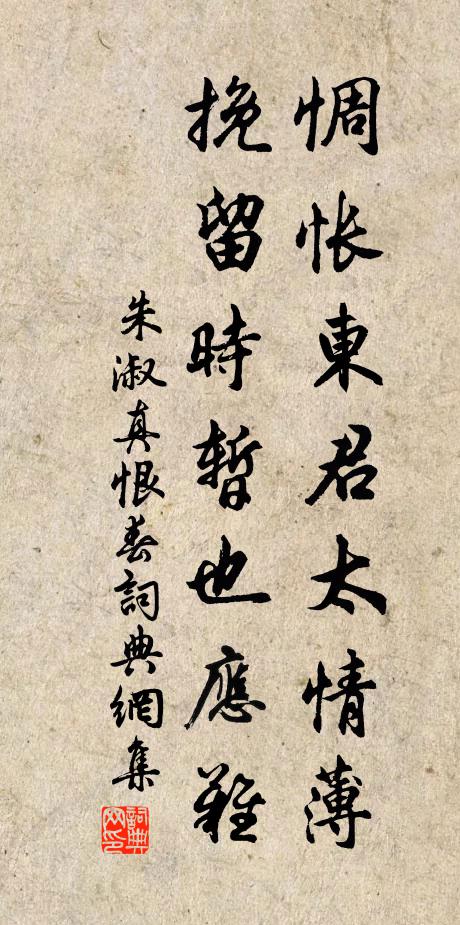 惆怅東君太情薄
挽留時暫也應難
朱淑真恨春詞典網集
詞典网印